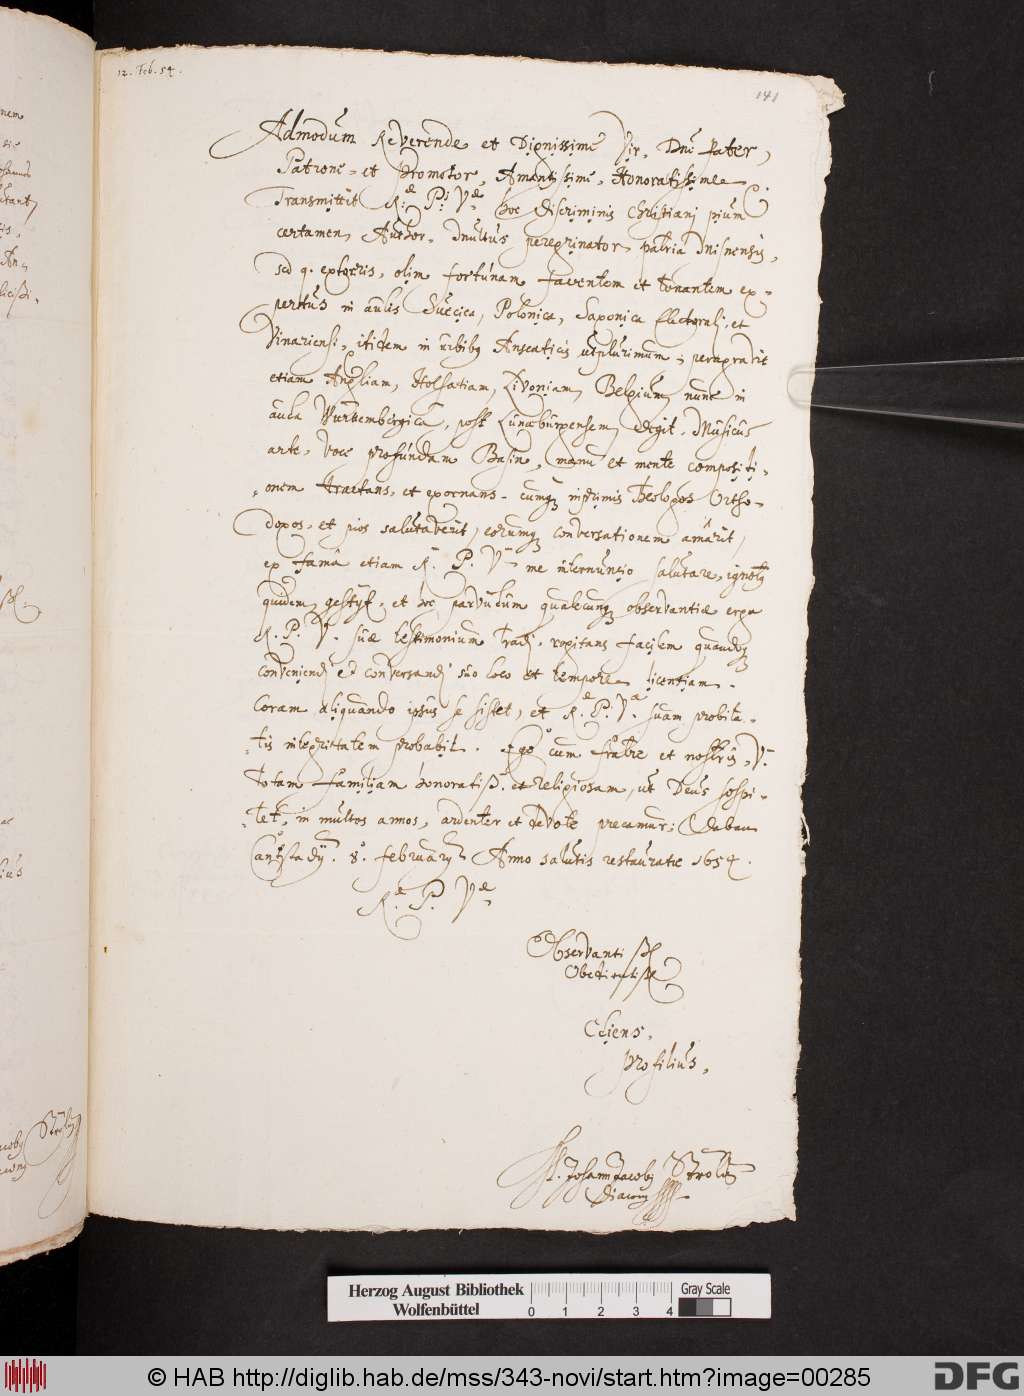 12. Feb. 54.
141
Admodum Reverende et Dignissime Vir, Dne Pater,
Patrone et Promotor, Amantissime, Honoratissime.
Transmittit R.æ P.s V.æ hoc discriminis Christiani pium
certamen, Author, multus peregrinator, patria
sed q. exterris, olim fortunam faventem et tonantem ex-
pertus in aulis Suecica, Polonica, Saxonica Electorali, et
Vinariensi, itidem in urbibq Anseaticis utplurimum, peragravit
etiam Angliam, Holsatiam, Livoniam, Belgium, nunc in
aula Würtembergica, post Lunæburgensem, degit. Musicus
arte, voce profundam Basin, manu et mente compositi-
onem tractans, et exornans. cumq inprimis Theologos Ortho-
doxos, et pios salutaverit, eorumq conversationem amârit,
ex fama etiam R. P. V. me internuntio salutare, ignotq
quidem, gestijt, et hoc parvulum qualecunq observantiæ erga
R. P. V. suæ testimonium tradi, rogitans facilem quandoq
conveniendi et conversandi suo loco et tempore licentiam.
Coram aliquando ipsus se sistet, et R.æ P. V.æ suam probita-
tis integritatem probabit. Ego cum fratre et nostris, V.
totam familiam honoratiß. et religiosam, ut Deus sospi-
tet, in multos annos, ardenter et devote precamur; Dabam
Cantstadij. 8. februarij Anno salutis restauratæ 1654.
R.æ P. V.æ
Observantißq
Obedientißq
Cliens,
Profilius,
M. Johann Jacobq Strölin
Diaconq
Herzog August Bibliothek
Wolfenbüttel
0 1 2 3 4
Gray Scale
© HAB http://diglib.hab.de/mss/343-novi/start.htm?image=00285
DFG